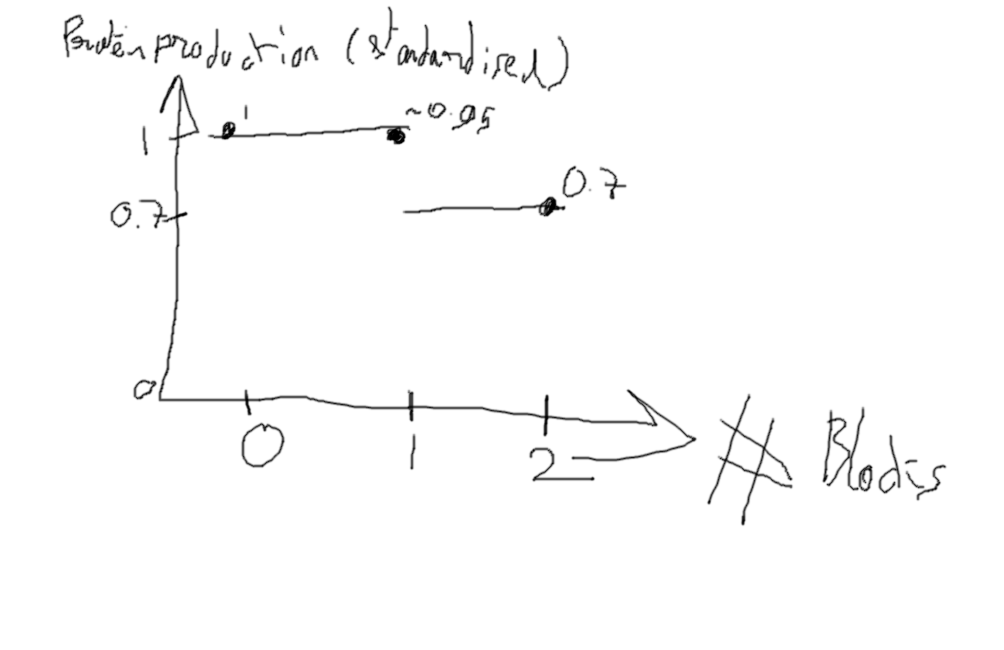 Protein production (standardised)
1
1
~0.95
0.7
0.7
0
0
1
2
#